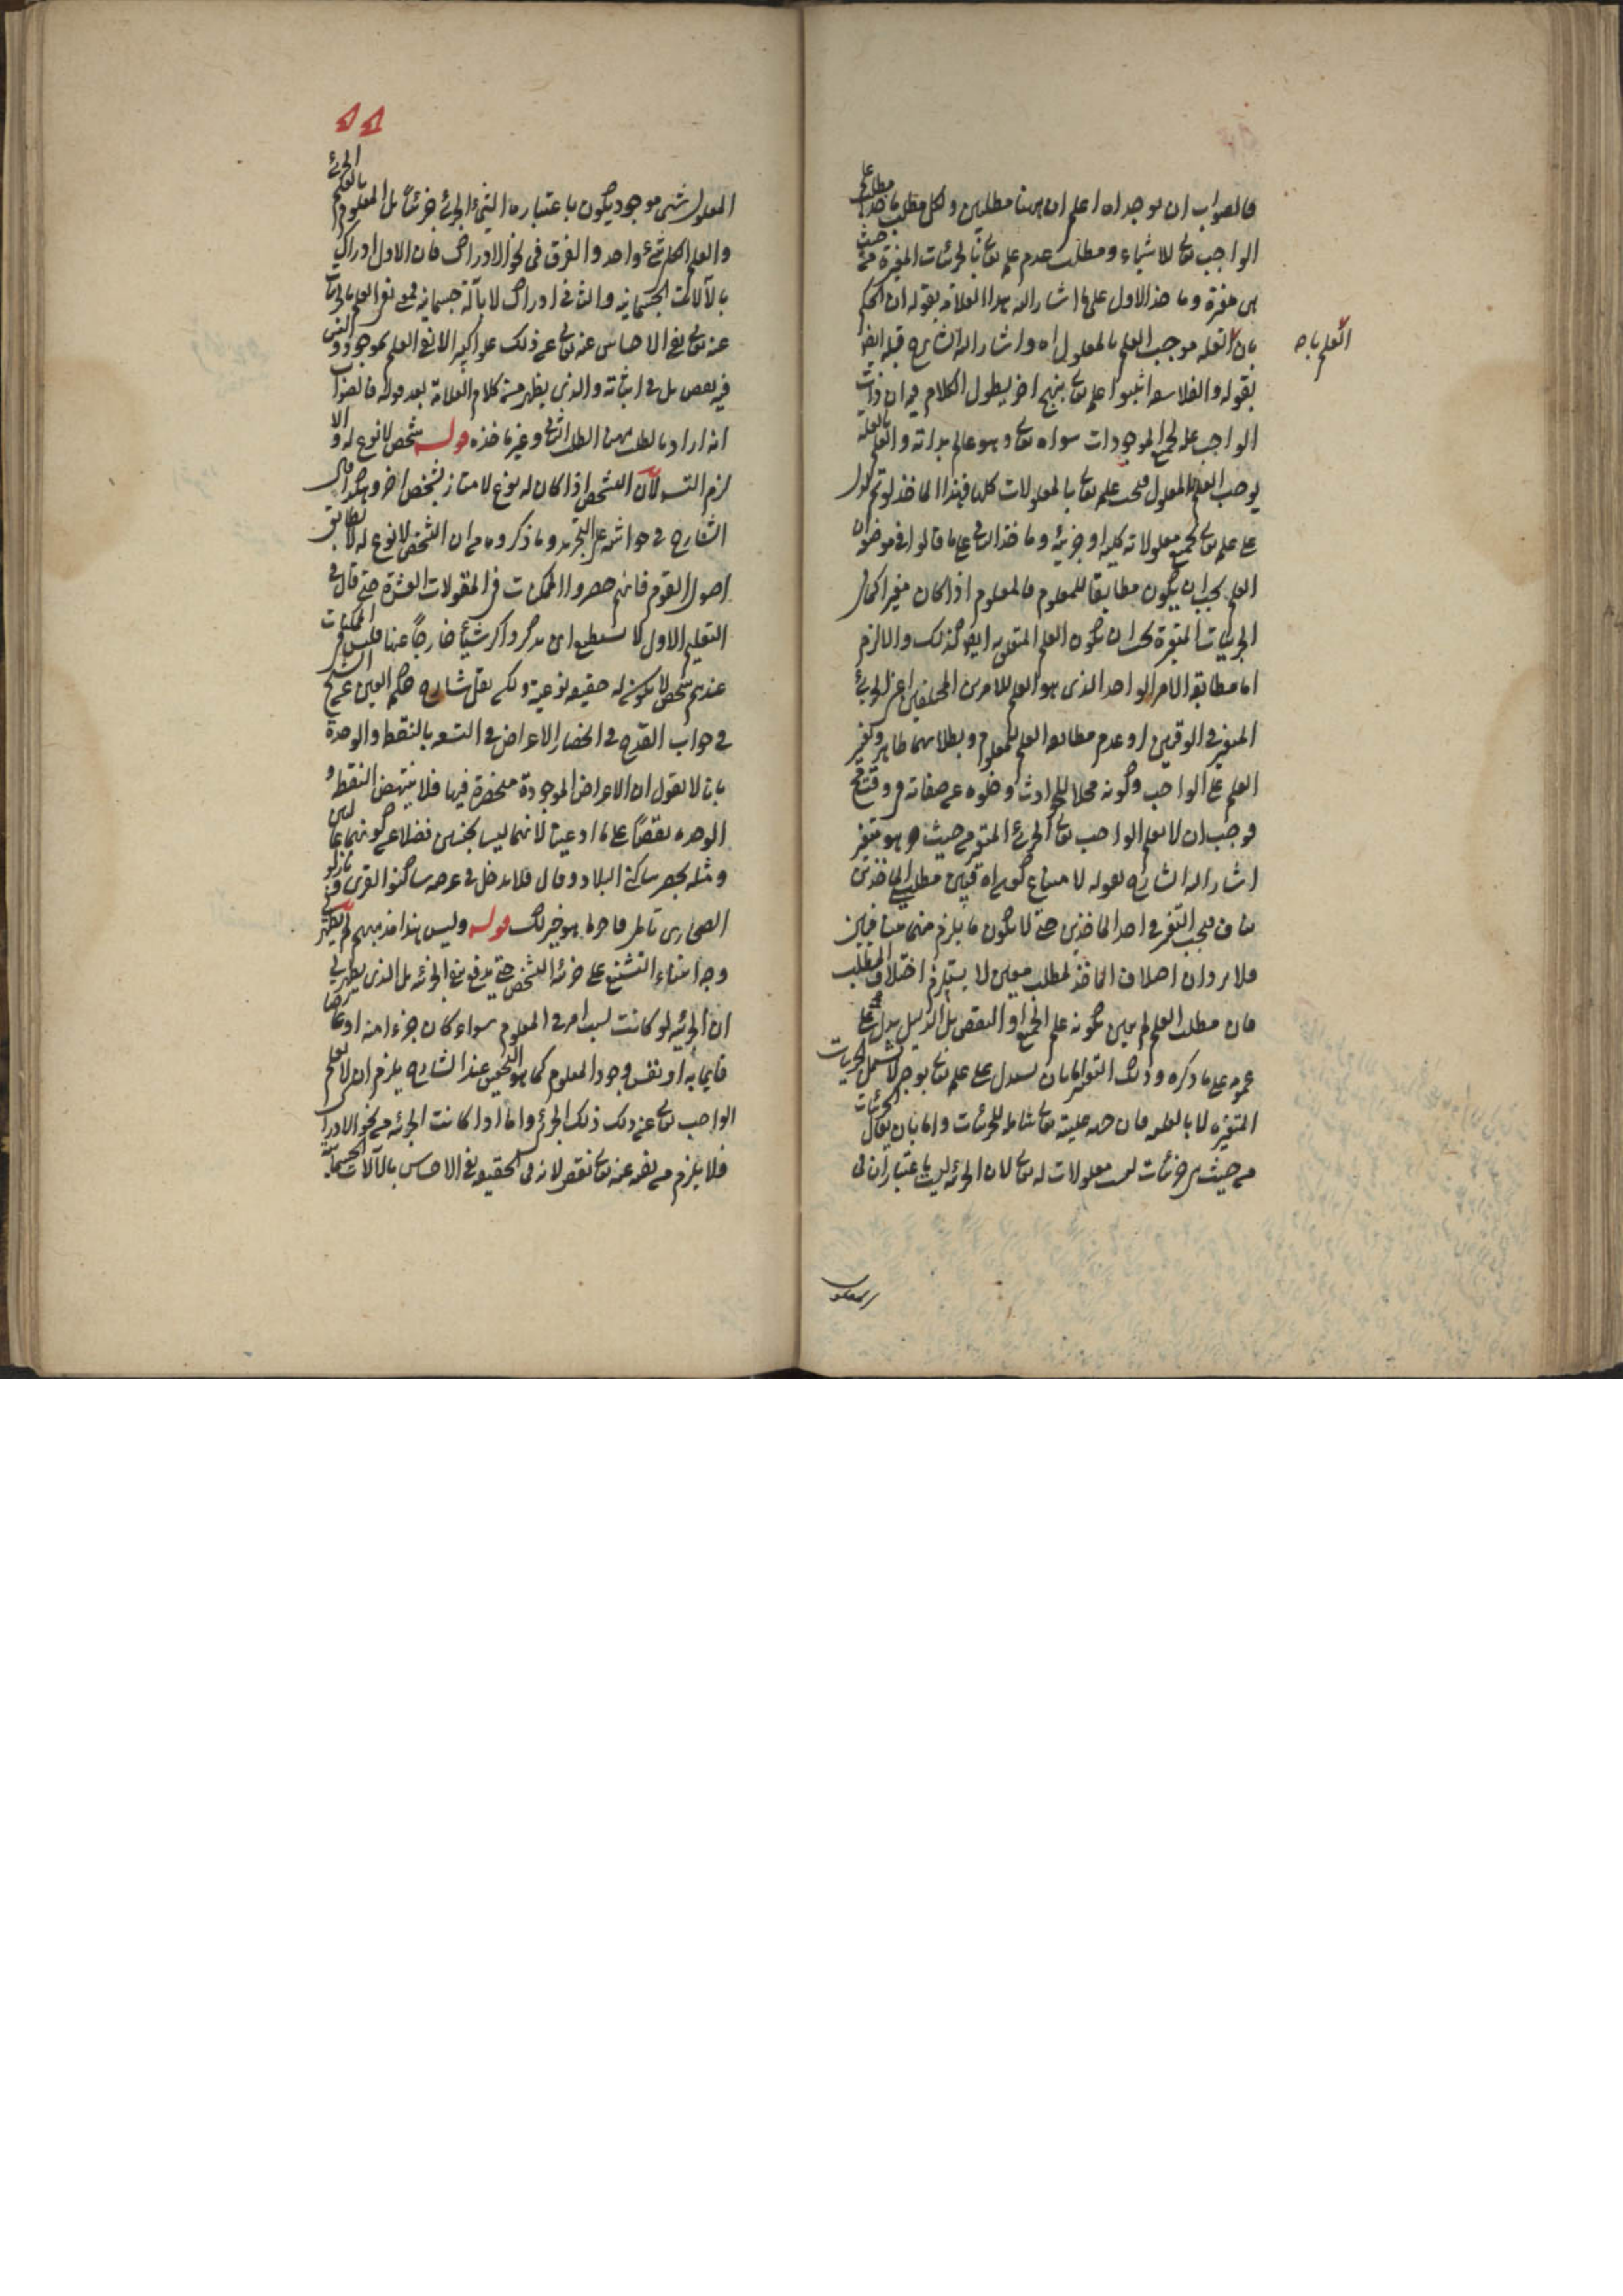 فالصواب ان يوجد اه اعلم ان ههنا مطلبين ولكل مطلب ماخذا مطلب علم
الواجب تعالى للاشياء ومطلب عدم علمه تعالى بالجزئيات المتغيرة من حيث
هى متغيرة وماخذ الاول على ما اشار اليه هذا العلامة بقوله ان الحكم
بان العلم بالعلة موجب العلم بالمعلول اه واشار اليه الشارح قبله ايضا
بقوله والفلاسفة اثبتوا علمه تعالى بنهج اخر يطول الكلام فيه ان ذات
الواجب علة لجميع الموجودات سواه تعالى وهو عالم بذاته والعلم بالعلة
يوجب العلم بالمعلول فيجب علمه تعالى بالمعلولات كلها فهذا الماخذ لو تم لدل
على علمه تعالى بجميع معلولاته كلية او جزئية وماخذ الثانى على ما قالوا فى موضعه ان
العلم يجب ان يكون مطابقا للمعلوم فالمعلوم اذا كان متغيرا كما فى
الجزئيات المتغيرة يجب ان يكون العلم المتعلق به ايضا كذلك والا لزم
اما مطابقة الامر الواحد الذى هو العلم للامرين المختلفين اعنى الجزئى
المتغير فى الوقتين او عدم مطابقة العلم للمعلوم وبطلانهما ظاهر وتغير
العلم على الواجب وكونه محلا للحوادث وخلوه عن صفاته فى وقت
فوجب ان لا يعلم الواجب تعالى الجزئى المتغير من حيث هو متغير
اشار اليه الشارح بقوله لا متناع كونه اه فبين مطلبى الماخذين
تناف فيجب التغير فى احد الماخذين حتى لا يكون ما يلزم منهما متنافيين
فلا يرد ان اختلاف الماخذ لمطلب معين لا يستلزم اختلاف المطلب
فان مطلب العلم لم يعين بكونه علم الجميع او البعض بل الدليل يدل على
عمومه على ما ذكره وذلك التغير اما بان يستدل على علمه تعالى بوجه لا يشمل الجزئيات
المتغيرة لا بالعلية فان جهة عليته تعالى شاملة للجزئيات واما بان يقال الجزئيات
من حيث هى جزئيات ليست معلولات له تعالى لان الجزئية ليست باعتبار ان فى
العلم بالعلة
المعلول
المعلول شىء موجود يكون باعتباره الشىء الجزئى جزئيا بل المعلوم بالعلم الجزئى
والعلم الكلى شىء واحد والفرق فى نحو الادراك فان الاول ادراك
بالآلات الجسمانية والثانى ادراك لا بآلة جسمانية فمعنى نفى العلم بالجزئيات
عنه تعالى نفى الاحساس عنه تعالى عن ذلك علوا كبيرا لا نفى العلم بموجود و ليس
فيه نقص بل فى اثباته والذى يظهر من كلام العلامة بعد قوله فالصواب
انه اراد بالمطلب ههنا المطلب الثانى وغير ماخذه قوله شخص لا نوع له والا
لزم التسلسل لان التشخص اذا كان له نوع لامتاز بشخص اخر وهكذا قال
الشارح فى حواشيه على التجريد وما ذكروه من ان الشخص لا نوع له لا يطابق
اصول القوم فانهم حصروا الممكنات فى المقولات العشرة حتى قال فى
التعليم الاول لا يستطيع ان يذكر ذاكر شيئا خارجا عنها فليس فى الممكنات
عندهم شخص لا يكون له حقيقة نوعية ولكن نقل شارح حكمة العين عن الشيخ
فى جواب القدح فى انحصار الاعراض فى التسعة بالنقطة والوحدة
بانا لا نقول ان الاعراض الموجودة منحصرة فيها فلا ينتهض النقطة و
الوحدة نقضا على ما ادعينا لانهما ليسا بجنسين فضلا عن كونهما عاليين
ومثله بحصر ساكنى البلاد وقال فلا يدخل فى عرضه ساكنوا القرى ونازلو
الصحارى تامل فاحراها هو خير لك قوله وليس هذا مذهبهم لم يظهر
وجه ابتناء التشنيع على جزئية التشخص حتى يدفع بنفى الجزئية بل الذى يظهر لى
ان الجزئية لو كانت بسبب امر فى المعلوم سواء كان جزءا منه او عارضا
قائما به او نفس وجود المعلوم كما هو التحقيق عند الشارح يلزم ان لا يعلم
الواجب تعالى عن ذلك ذلك الجزئى واما اذا كانت الجزئية من نحو الادراك
فلا يلزم من نفيه عنه تعالى نقص لانه فى الحقيقة نفى الاحساس بالآلات الجسمانية